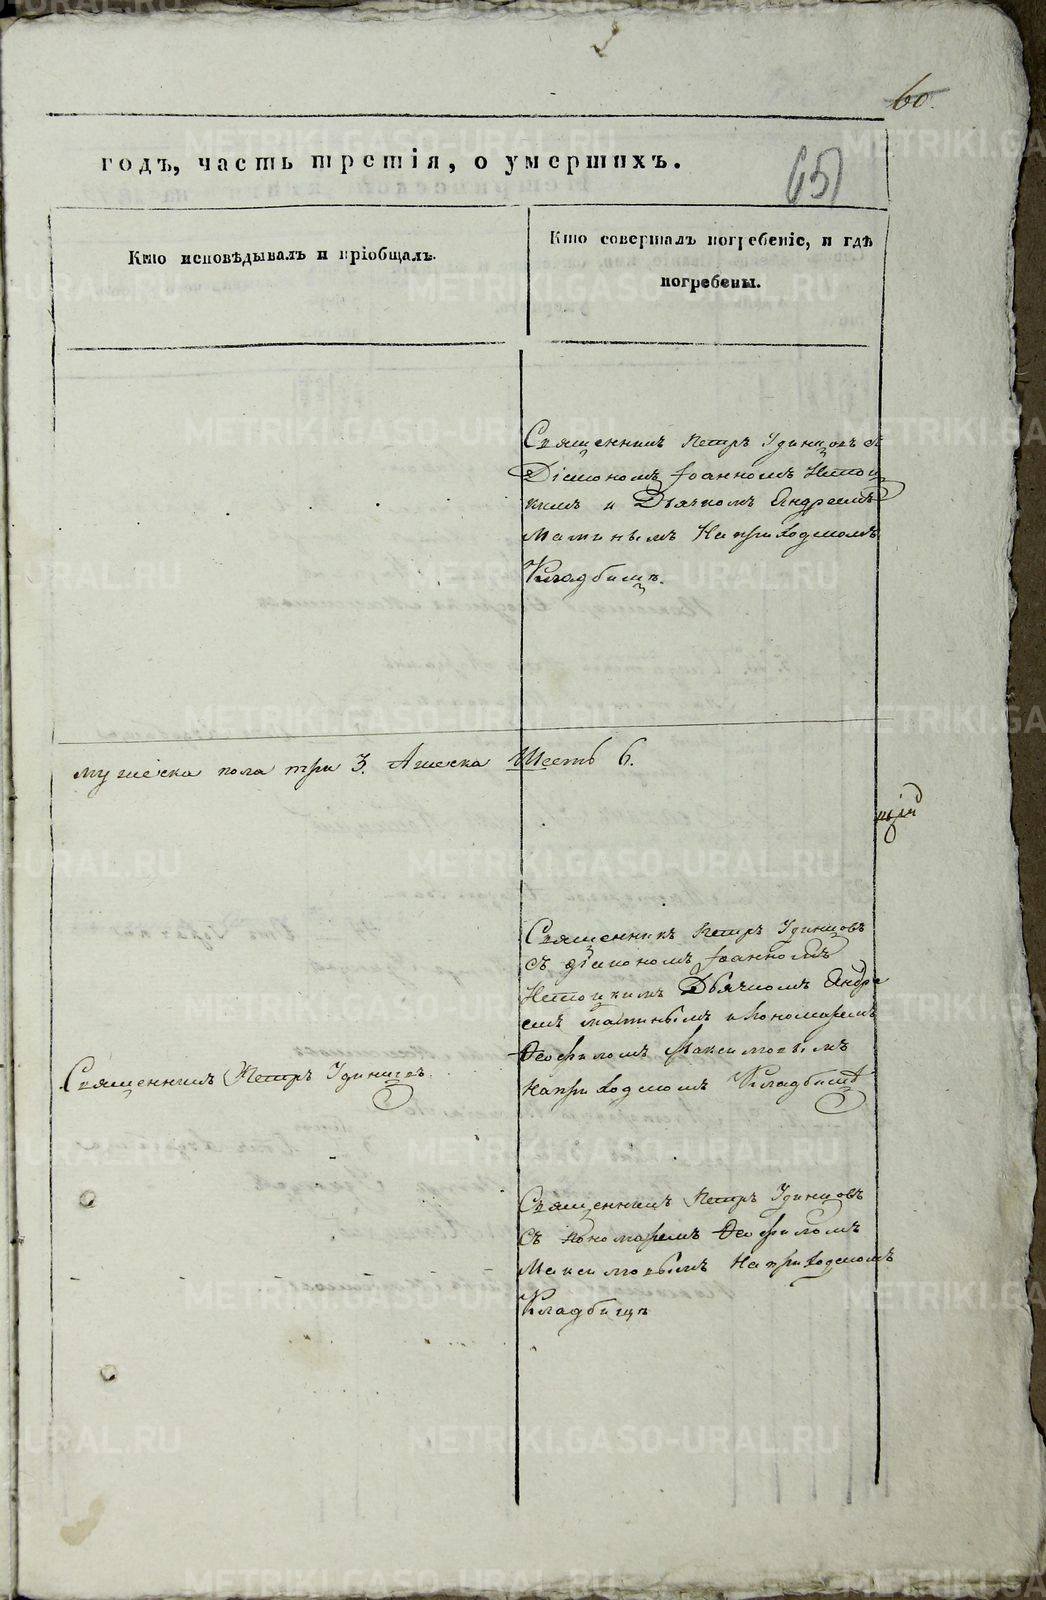 60.
65
годъ, часть третія, о умершихъ.
Кто исповѣдывалъ и пріобщалъ.
Кто совершалъ погребеніе, и гдѣ
погребены.
Священникъ Петръ Удинцовъ съ
Діакономъ Іоанномъ
и Дьячкомъ Андреемъ
Маминымъ На приходскомъ
Кладбищѣ.
мужеска пола три 3. А женска Шесть 6.
Священникъ Петръ Удинцовъ
съ діакономъ Іоанномъ
Дьячкомъ Андре
емъ Маминымъ и Пономаремъ
Ѳеофиломъ Максимовымъ
На приходскомъ Кладбищѣ
Священникъ Петръ Удинцовъ.
Священникъ Петръ Удинцовъ
съ Пономаремъ Ѳеофиломъ
Максимовымъ На приходскомъ
Кладбищѣ
METRIKI.GASO-URAL.RU